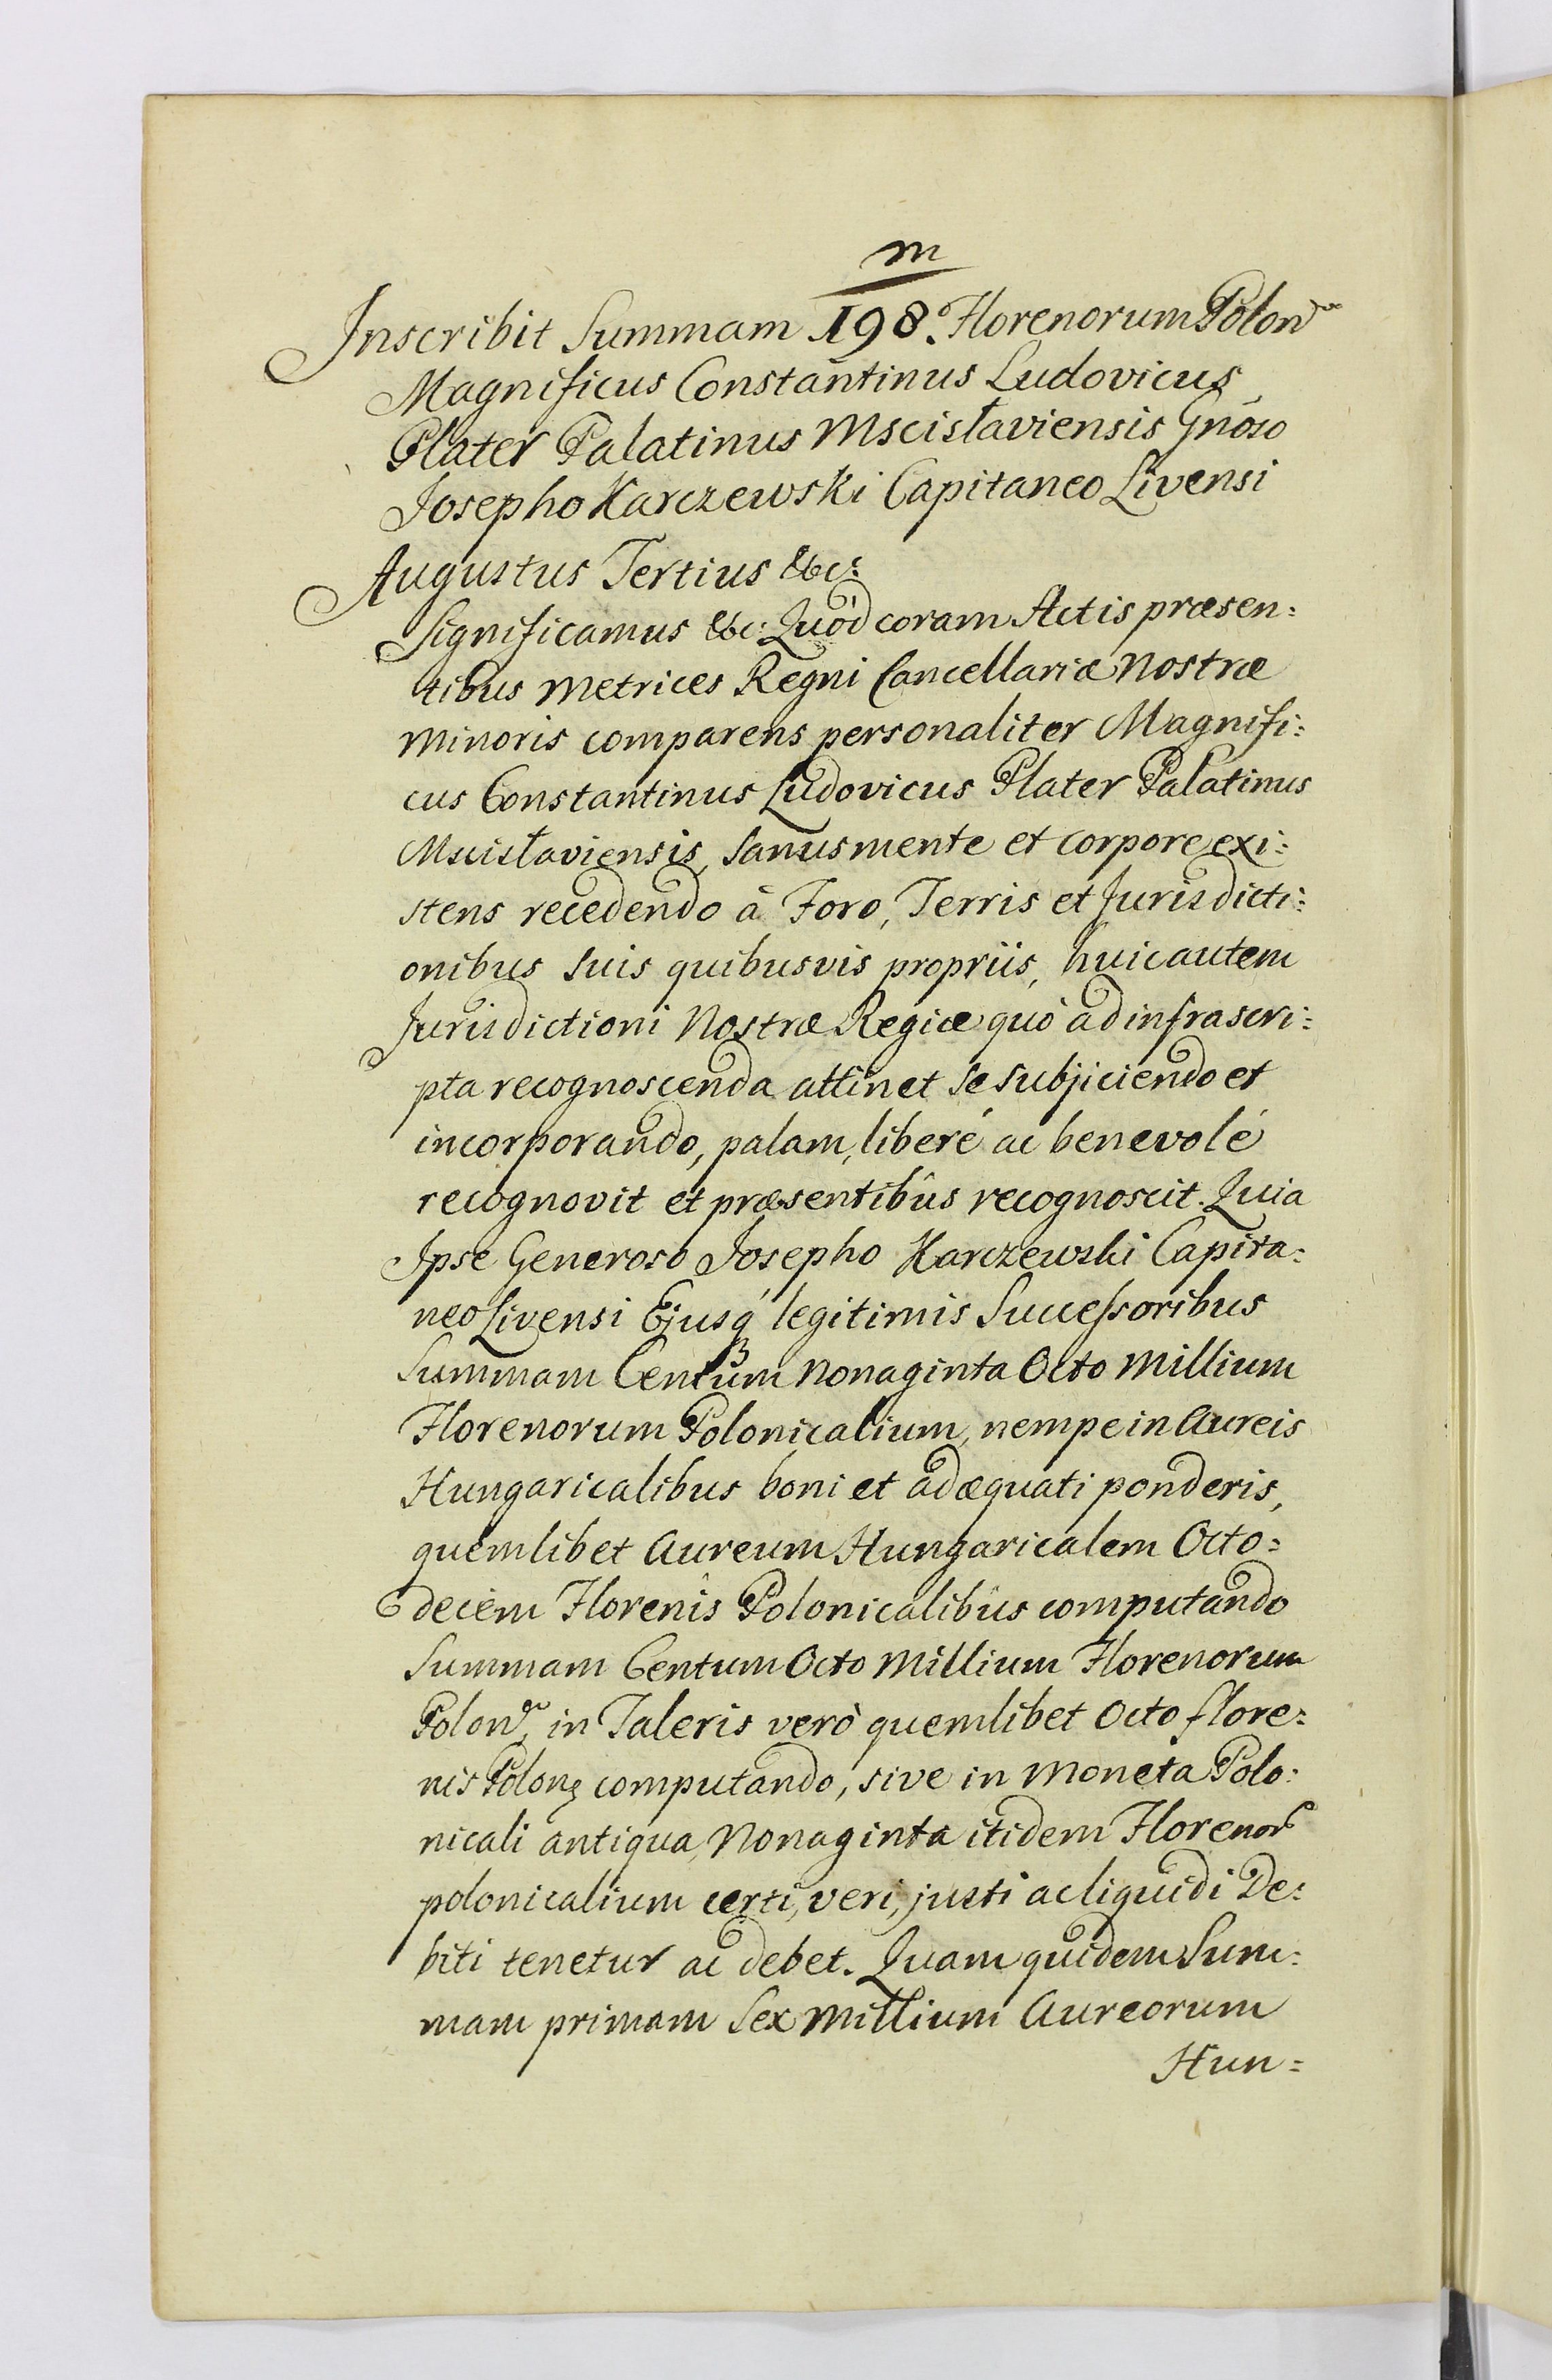 m
Inscribit Summam 198. Florenorum Polon
Magnificus Constantinus Ludovicus
Plater Palatinus Mscisłaviensis Gnoso
Josepho Karczewski Capitaneo Livensi
Augustus Tertius &c:
Significamus &c: Quòd coram Actis præsen:
tibus Metrices Regni Cancellariæ Nostræ
Minoris comparens personaliter Magnifi:
cus Constantinus Ludovicus Plater Palatinus
Mscisłaviensis, sanus mente et corpore exi:
stens recedendo â Foro, Terris et Jurisdicti:
onibus suis quibusvis propriis, huic autem
Jurisdictioni Nostræ Regiæ quò ad infrascri:
pta recognoscenda attinet se subjiciendo et
incorporando, palam, liberé ac benevolé
recognovit et præsentibûs recognoscit. Quia
Ipse Generoso Josepho Karczewski Capita:
neo Livensi Ejusq́ legitimis Successoribus
Summam Centum Nonaginta Octo Millium
Florenorum Polonicalium, nempe in Aureis
Hungaricalibus boni et adæquati ponderis,
quemlibet Aureum Hungaricalem Octo:
decem Florenîs Polonicalibûs computando
Summam Centum Octo Millium Florenorum
Polon, in Taleris verò quemlibet Octo flore:
nis Polon computando, sive in Moneta Polo:
nicali antiqua, Nonaginta itidem Florenor
polonicalium certi, veri, justi ac liquidi De:
biti tenetur ac debet. Quam quidem Sum:
mam primam Sex Millium Aureorum
Hun=